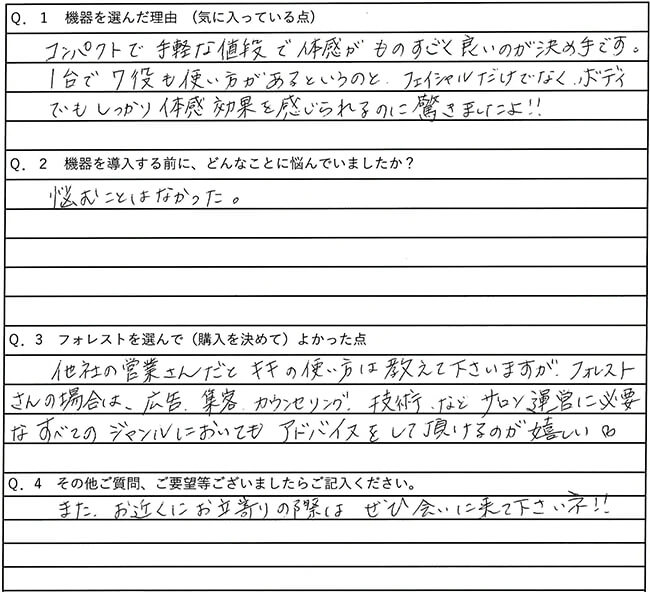 Q. 1 機器を選んだ理由 （気に入っている点）
コンパクトで 手軽な値段で体感が ものすごく良いのが決め手です。
1台で 7役も使い方があるというのと、フェイシャルだけでなく、ボディ
でもしっかり体感効果を感じられるのに驚きましたよ!!
Q. 2 機器を導入する前に、どんなことに悩んでいましたか？
悩むことはなかった。
Q. 3 フォレストを選んで（購入を決めて）よかった点
他社の営業さんだと キキの使い方は教えて下さいますが、フォレスト
さんの場合は、広告、集客、カウンセリング、技術、など サロン運営に必要
な すべての ジャンルにおいても アドバイスをして頂けるのが嬉しい
Q. 4 その他ご質問、ご要望等ございましたらご記入ください。
また、お近くにお立寄りの際は ぜひ会いに来て下さいネ!!